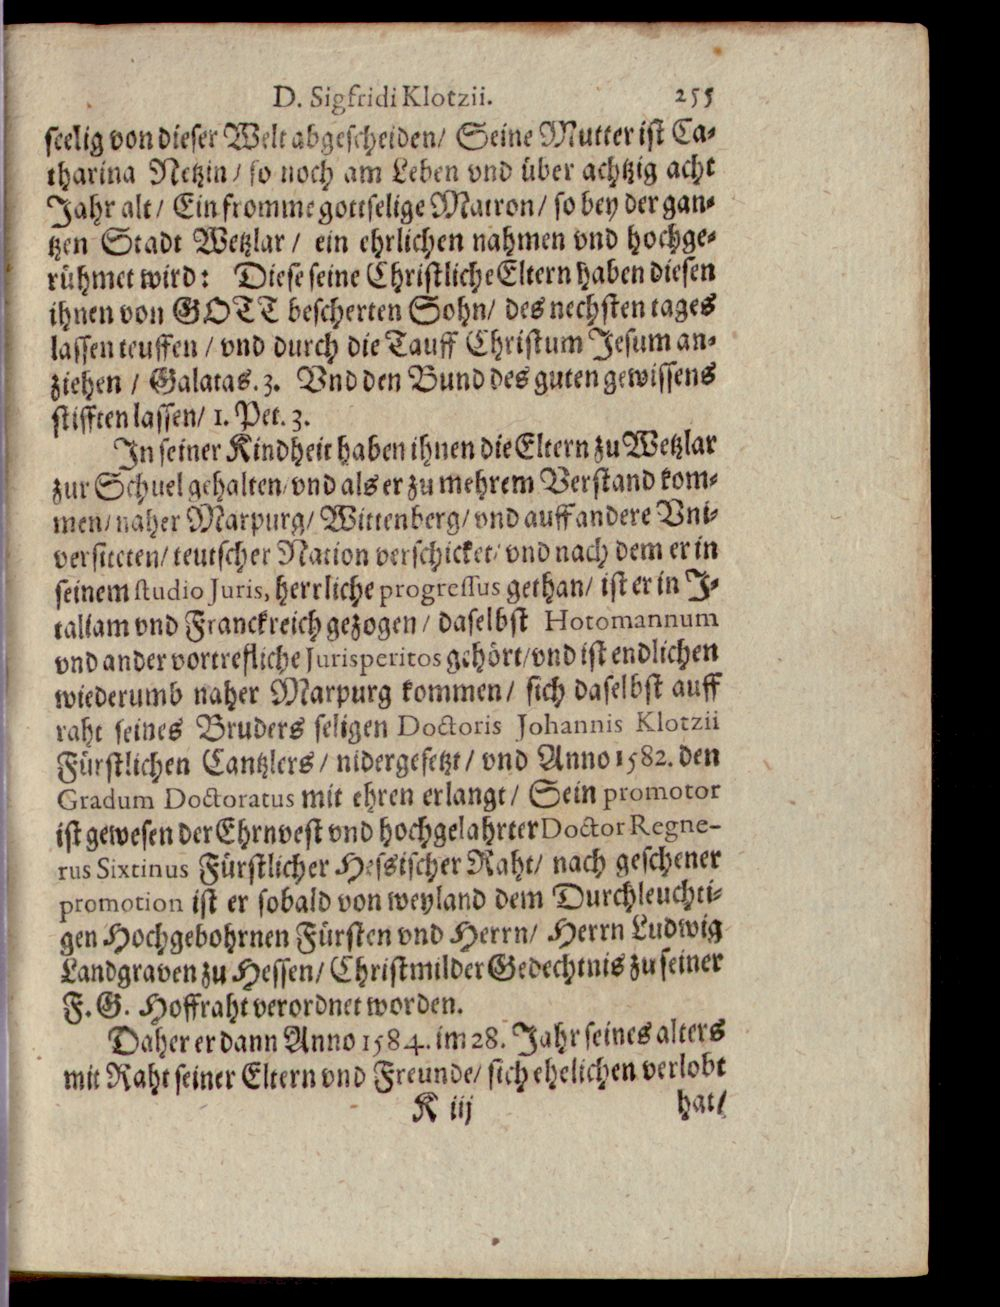 D. Sigfridi Klotzii. 255
seelig von dieser Welt abgescheiden/ Seine Mutter ist Ca-
tharina Netzin/ so noch am Leben vnd über achtzig acht
Jahr alt/ Ein fromme gottselige Matron/ so bey der gan-
tzen Stadt Wetzlar/ ein ehrlichen nahmen vnd hochge-
rühmet wird: Diese seine Christliche Eltern haben diesen
ihnen von GOTT bescherten Sohn/ des nechsten tages
lassen teuffen/ vnd durch die Tauff Christum Jesum an-
ziehen/ Galatas. 3. Vnd den Bund des guten gewissens
stifften lassen/ 1. Pet. 3.
In seiner Kindheit haben ihnen die Eltern zu Wetzlar
zur Schuel gehalten/ vnd als er zu mehrem Verstand kom-
men/ naher Marpurg/ Wittenberg/ vnd auff andere Vni-
versiteten/ teutscher Nation verschicket/ vnd nach dem er in
seinem studio Juris, herrliche progressus gethan/ ist er in J-
taliam vnd Franckreich gezogen/ daselbst Hotomannum
vnd ander vortrefliche Jurisperitos gehört/ vnd ist endlichen
wiederumb naher Marpurg kommen/ sich daselbst auff
raht seines Bruders seligen Doctoris Johannis Klotzii
Fürstlichen Cantzlers/ nidergesetzt/ vnd Anno 1582. den
Gradum Doctoratus mit ehren erlangt/ Sein promotor
ist gewesen der Ehrnvest vnd hochgelahrter Doctor Regne-
rus Sixtinus Fürstlicher Hessischer Raht/ nach geschener
promotion ist er sobald von weyland dem Durchleuchti-
gen Hochgebohrnen Fürsten vnd Herrn/ Herrn Ludwig
Landgraven zu Hessen/ Christmilder Gedechtnis zu seiner
F. G. Hoffraht verordnet worden.
Daher er dann Anno 1584. im 28. Jahr seines alters
mit Raht seiner Eltern vnd Freunde/ sich ehelichen verlobt
K iij hat/